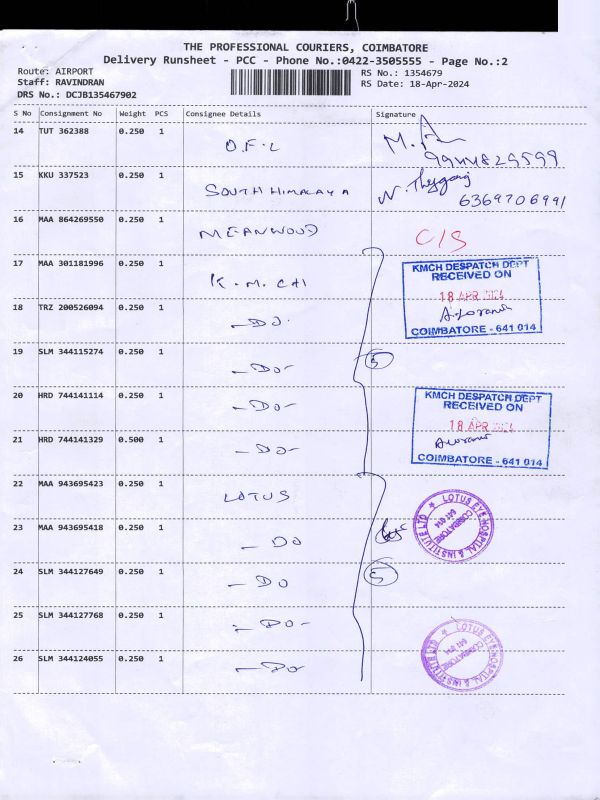 THE PROFESSIONAL COURIERS, COIMBATORE
Delivery Runsheet - PCC - Phone No.:0422-3505555 - Page No.:2
Route: AIRPORT RS No.: 1354679
Staff: RAVINDRAN RS Date: 18-Apr-2024
DRS No.: DCJB135467902
S No Consignment No Weight PCS Consignee Details Signature
14 TUT 362388 0.250 1 O.F.L
9944829599
15 KKU 337523 0.250 1 SOUTH HIMALAYA N.
6369706991
16 MAA 864269550 0.250 1 MEANWOOD C/S
17 MAA 301181996 0.250 1 K.M.CH
KMCH DESPATCH DEPT
RECEIVED ON
18 APR 2024
COIMBATORE - 641 014
18 TRZ 200526094 0.250 1 -DO-
19 SLM 344115274 0.250 1 -DO- 5
20 HRD 744141114 0.250 1 -DO-
KMCH DESPATCH DEPT
RECEIVED ON
18 APR 2024
COIMBATORE - 641 014
21 HRD 744141329 0.500 1 -DO-
22 MAA 943695423 0.250 1 LOTUS
LOTUS EYE HOSPITAL & INSTITUTE LTD
COIMBATORE
641 014
23 MAA 943695418 0.250 1 -DO
24 SLM 344127649 0.250 1 -DO 5
25 SLM 344127768 0.250 1 -DO-
LOTUS EYE HOSPITAL & INSTITUTE LTD
COIMBATORE
641 014
26 SLM 344124055 0.250 1 -DO-